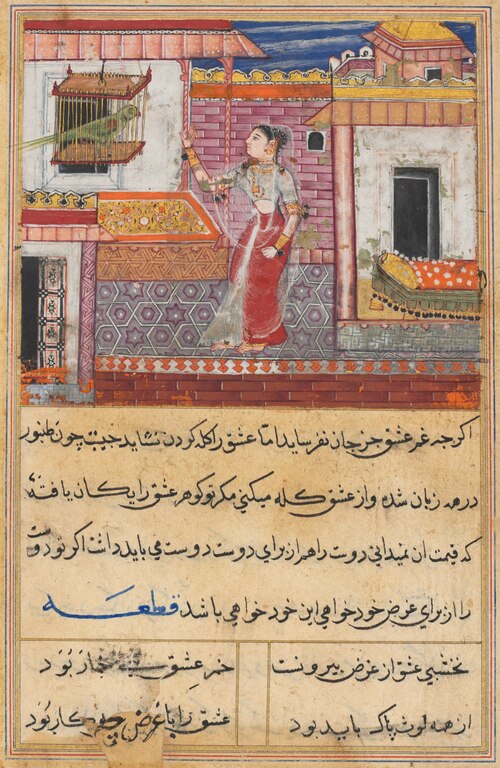 اکرجه غم عشق جز جان نفرساید اما عشق را کله کردن نشاید جیست چون طنبور
همه زبان شده و از عشق کله میکنی مکر تو کوهر عشق رایکان یافتهٔ
که قیمت ان نمیدانی دوست را هم از برای دوست دوست می باید داشت اکر تو دوست
را از برای غرض خود خواهی این خود خواهی باشد قطعه
نخشبی عشق از غرض بیرونست خمر عشق بود
از همه لوث پاک باید بود عشق را با غرض کار بود